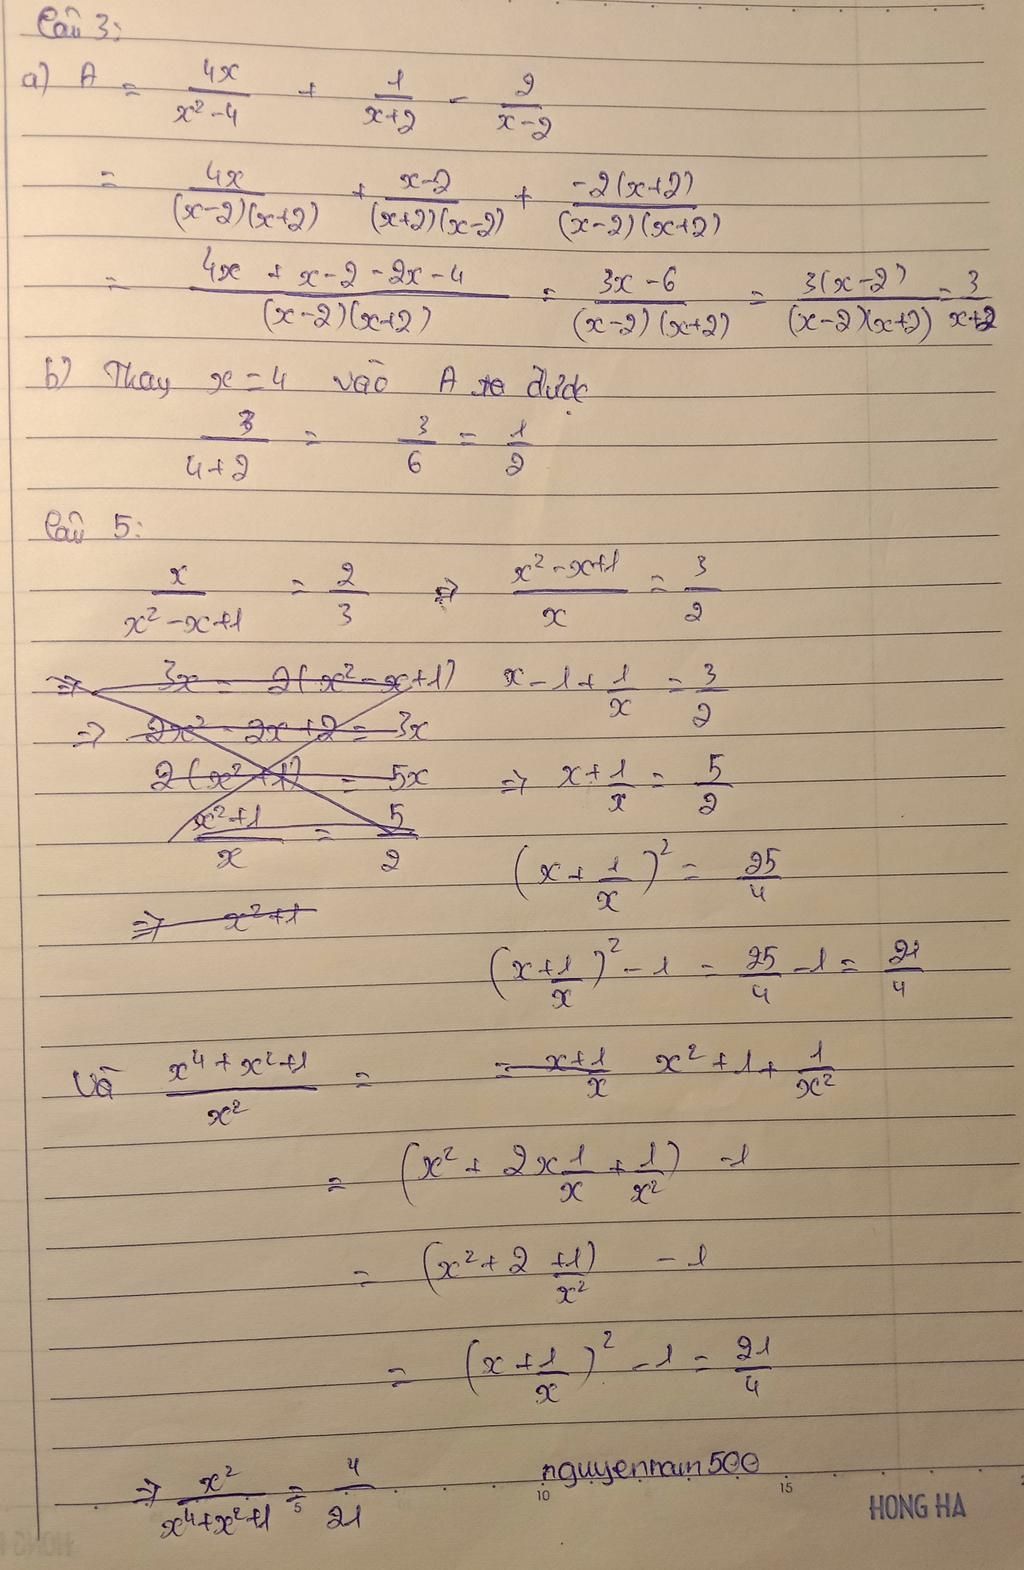 Câu 3:
a) A = 4x/(x² - 4) + 1/(x+2) - 2/(x-2)
= 4x/((x-2)(x+2)) + (x-2)/((x+2)(x-2)) + (-2(x+2))/((x-2)(x+2))
= (4x + x-2 - 2x - 4)/((x-2)(x+2)) = (3x - 6)/((x-2)(x+2)) = (3(x-2))/((x-2)(x+2)) = 3/(x+2)
b) Thay x = 4 vào A ta được
3/(4+2) = 3/6 = 1/2
Câu 5:
x/(x² - x+1) = 2/3 => (x² - x+1)/x = 3/2
=> 3x = 2(x² - x+1) x - 1 + 1/x = 3/2
=> 2x² - 2x+2 = 3x
2(x²+1) = 5x => x + 1/x = 5/2
(x²+1)/x = 5/2
(x + 1/x)² = 25/4
=> x²+1
(x + 1/x)² - 1 = 25/4 - 1 = 21/4
Và (x⁴+x²+1)/x² = = x+1/x x² + 1 + 1/x²
= (x² + 2x 1/x + 1/x²) - 1
= (x² + 2 + 1/x²) - 1
= (x + 1/x)² - 1 = 21/4
=> x²/(x⁴+x²+1) = 4/21
nguyennam500
5 10 15
HONG HA